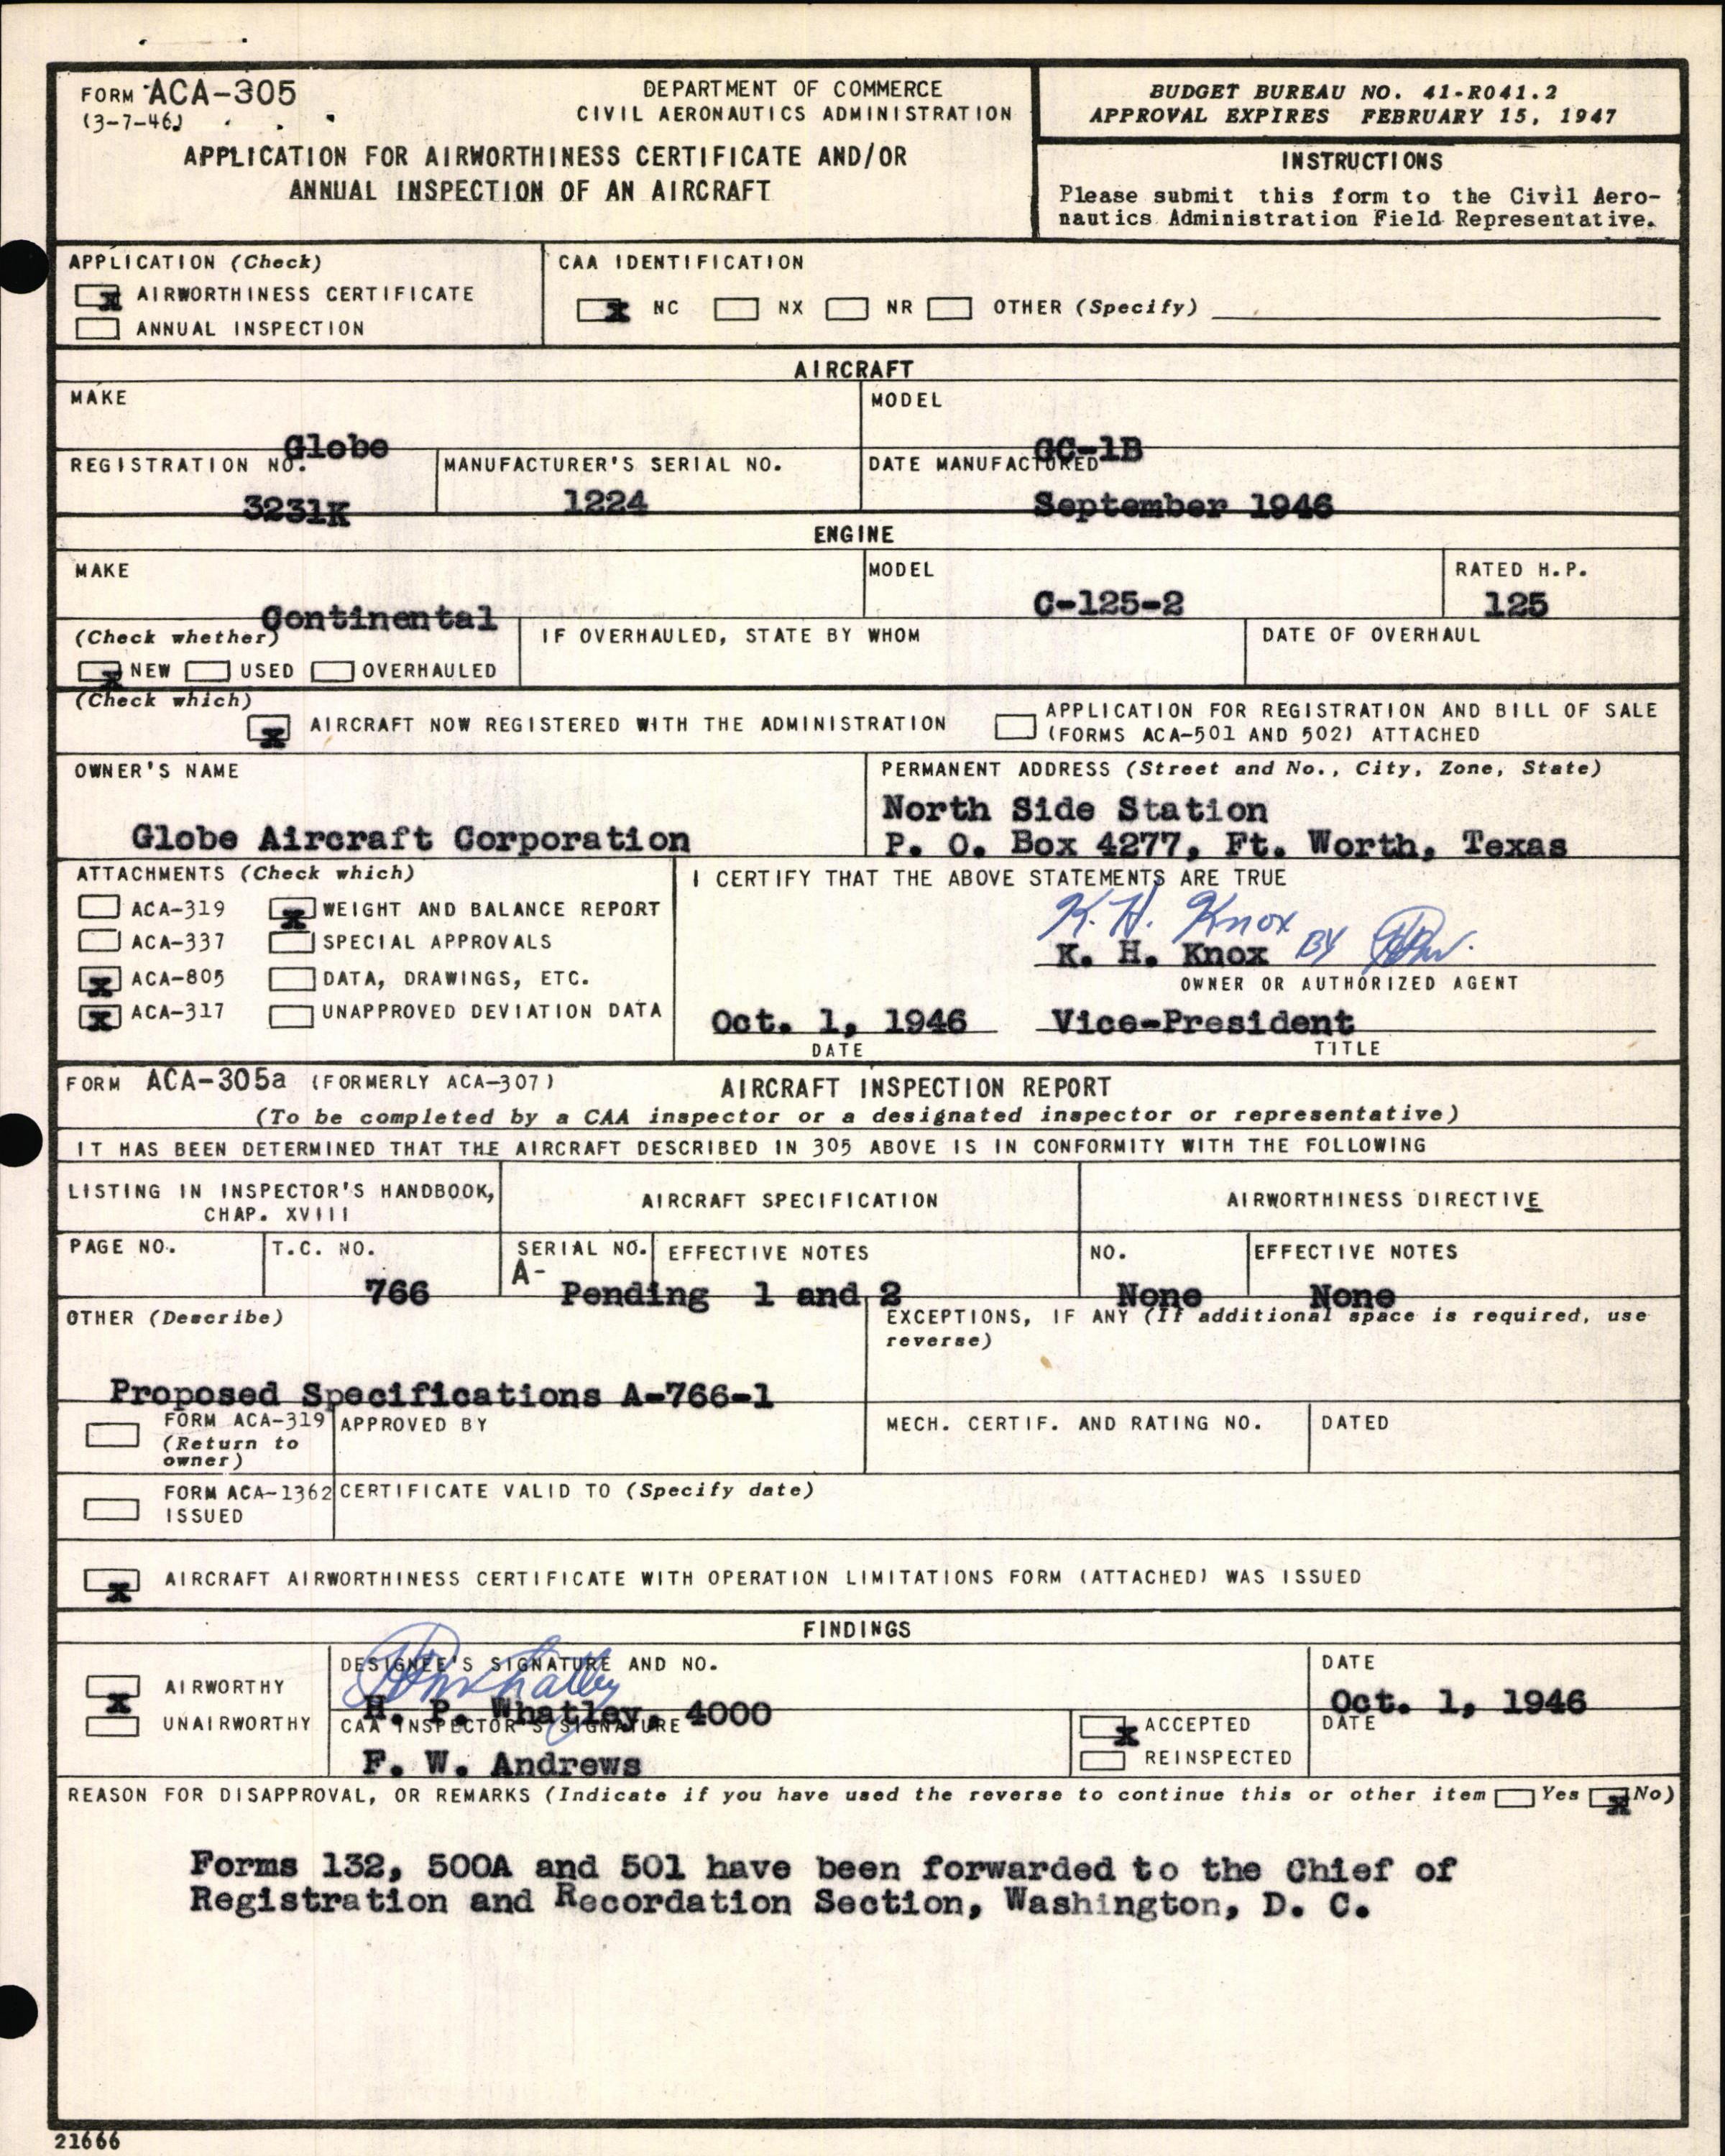 FORM ACA-305
(3-7-46)
DEPARTMENT OF COMMERCE
CIVIL AERONAUTICS ADMINISTRATION
APPLICATION FOR AIRWORTHINESS CERTIFICATE AND/OR
ANNUAL INSPECTION OF AN AIRCRAFT
BUDGET BUREAU NO. 41-R041.2
APPROVAL EXPIRES FEBRUARY 15, 1947
INSTRUCTIONS
Please submit this form to the Civil Aero-
nautics Administration Field Representative.
APPLICATION (Check)
x AIRWORTHINESS CERTIFICATE
ANNUAL INSPECTION
CAA IDENTIFICATION
x NC NX NR OTHER (Specify)
AIRCRAFT
MAKE
Globe
MODEL
GC-1B
REGISTRATION NO.
3231K
MANUFACTURER'S SERIAL NO.
1224
DATE MANUFACTURED
September 1946
ENGINE
MAKE
Continental
MODEL
C-125-2
RATED H.P.
125
(Check whether)
x NEW USED OVERHAULED
IF OVERHAULED, STATE BY WHOM
DATE OF OVERHAUL
(Check which)
x AIRCRAFT NOW REGISTERED WITH THE ADMINISTRATION
APPLICATION FOR REGISTRATION AND BILL OF SALE
(FORMS ACA-501 AND 502) ATTACHED
OWNER'S NAME
Globe Aircraft Corporation
PERMANENT ADDRESS (Street and No., City, Zone, State)
North Side Station
P. O. Box 4277, Ft. Worth, Texas
ATTACHMENTS (Check which)
ACA-319 x WEIGHT AND BALANCE REPORT
ACA-337 SPECIAL APPROVALS
x ACA-805 DATA, DRAWINGS, ETC.
x ACA-317 UNAPPROVED DEVIATION DATA
I CERTIFY THAT THE ABOVE STATEMENTS ARE TRUE
K. H. Knox BY
K. H. Knox
OWNER OR AUTHORIZED AGENT
Oct. 1, 1946 Vice-President
DATE TITLE
FORM ACA-305a (FORMERLY ACA-307) AIRCRAFT INSPECTION REPORT
(To be completed by a CAA inspector or a designated inspector or representative)
IT HAS BEEN DETERMINED THAT THE AIRCRAFT DESCRIBED IN 305 ABOVE IS IN CONFORMITY WITH THE FOLLOWING
LISTING IN INSPECTOR'S HANDBOOK,
CHAP. XVIII
AIRCRAFT SPECIFICATION
AIRWORTHINESS DIRECTIVE
PAGE NO.
T.C. NO.
766
SERIAL NO.
A- Pending
EFFECTIVE NOTES
1 and 2
NO.
None
EFFECTIVE NOTES
None
OTHER (Describe)
Proposed Specifications A-766-1
EXCEPTIONS, IF ANY (If additional space is required, use
reverse)
FORM ACA-319
(Return to
owner)
APPROVED BY
MECH. CERTIF. AND RATING NO.
DATED
FORM ACA-1362
ISSUED
CERTIFICATE VALID TO (Specify date)
x AIRCRAFT AIRWORTHINESS CERTIFICATE WITH OPERATION LIMITATIONS FORM (ATTACHED) WAS ISSUED
FINDINGS
x AIRWORTHY
UNAIRWORTHY
DESIGNEE'S SIGNATURE AND NO.
H. P. Whatley, 4000
DATE
Oct. 1, 1946
CAA INSPECTOR'S SIGNATURE
F. W. Andrews
x ACCEPTED
REINSPECTED
DATE
REASON FOR DISAPPROVAL, OR REMARKS (Indicate if you have used the reverse to continue this or other item Yes x No)
Forms 132, 500A and 501 have been forwarded to the Chief of
Registration and Recordation Section, Washington, D. C.
21666